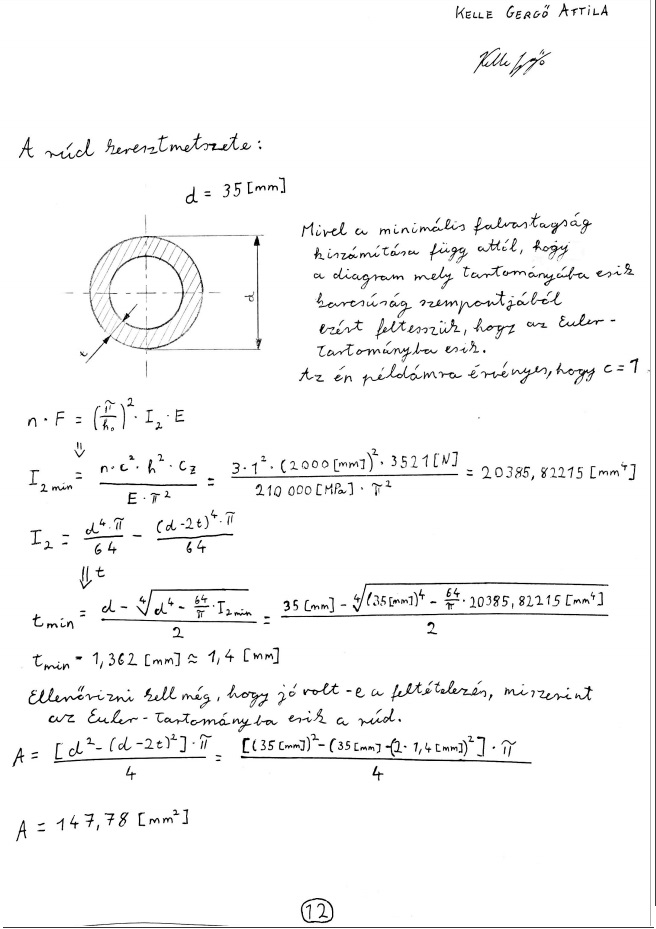 KELLE GERGŐ ATTILA
Kelle Gergő
A rúd keresztmetszete:
d = 35 [mm]
d
t
Mivel a minimális falvastagság
kiszámítása függ attól, hogy
a diagram mely tartományába esik
karcsúság szempontjából
ezért feltesszük, hogy az Euler-
tartományba esik.
Az én példámra érvényes, hogy c = 1
n · F = (π/h₀)² · I₂ · E
⇓
I₂ min = (n · c² · h² · Cz)/(E · π²) = (3 · 1² · (2000 [mm])² · 3521 [N])/(210 000 [MPa] · π²) = 20385,82215 [mm⁴]
I₂ = (d⁴ · π)/64 - ((d - 2t)⁴ · π)/64
⇓ t
tmin = (d - ∜(d⁴ - 64/π · I₂min))/2 = (35 [mm] - ∜((35 [mm])⁴ - 64/π · 20385,82215 [mm⁴]))/2
tmin = 1,362 [mm] ≈ 1,4 [mm]
Ellenőrizni kell még, hogy jó volt-e a feltételezés, miszerint
az Euler-tartományba esik a rúd.
A = ([d² - (d - 2t)²] · π)/4 = ([(35 [mm])² - (35 [mm] - (2 · 1,4 [mm])²] · π)/4
A = 147,78 [mm²]
12